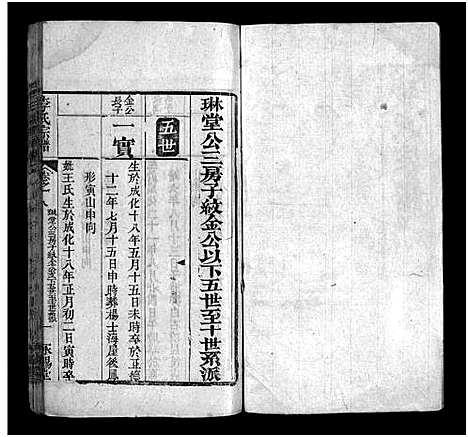 琳堂公三房子紋金公以下五世至十世系派
五世
金公
長子
一實
生於成化十八年五月十五日未時卒於正德
十二年七月十五日申時葬楊士海屋後鳳
形寅山申向
妣王氏生於成化十八年正月初二日寅時卒
李氏宗譜